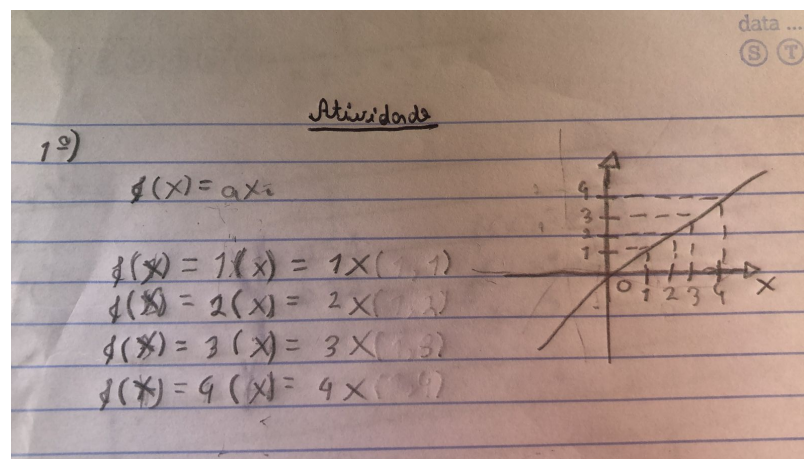 data ...
S T
Atividade
1º)
f(x) = ax
f(x) = 1(x) = 1x(1,1)
f(x) = 2(x) = 2x(1,2)
f(x) = 3(x) = 3x(1,3)
f(x) = 4(x) = 4x(1,4)
4
3
2
1
0 1 2 3 4 x